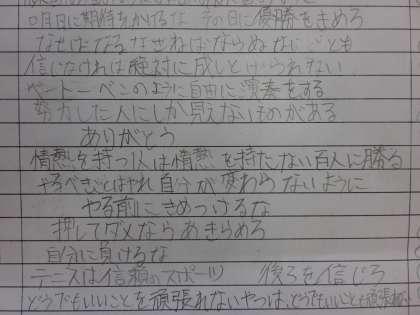 〇月〇日に期待をかけるな その日に優勝をきめろ
なせばなる なせねばならぬ とも
信じなければ絶対に成しとげられない
ベートーベンのように自由に演奏をする
努力した人にしか見えないものがある
ありがとう
情熱を持つ1人は情熱を持たない百人に勝る
するべきことはやれ自分が変わらないように
やる前にきめつけるな
押してダメならあきらめろ
自分に負けるな
テニスは信頼のスポーツ 後ろを信じろ
どうでもいいことを頑張れないやつは、どうでもいいことも頑張れ